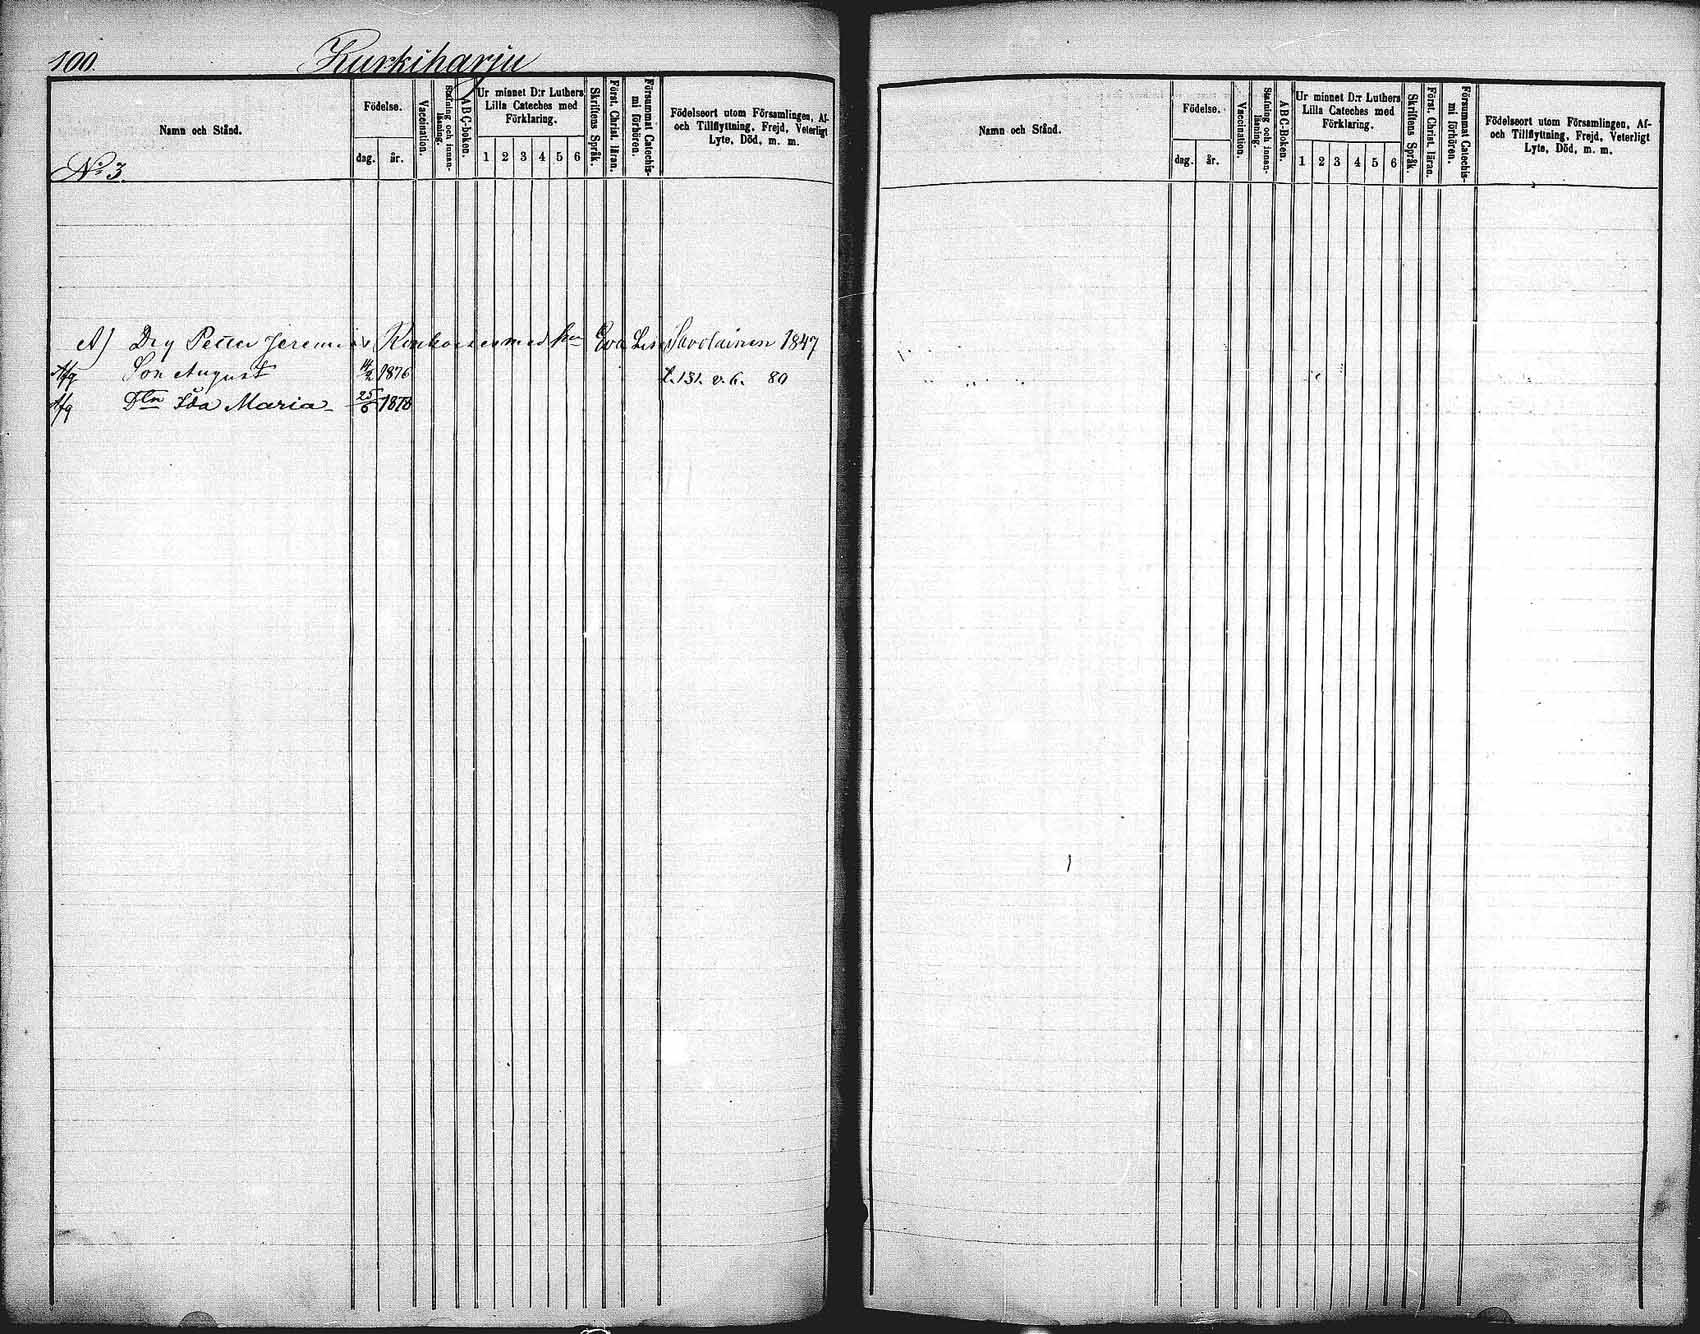 100.
Kurkiharju
Namn och Stånd.
Födelse.
dag. år.
Vaccination.
Stafning och innan-läsning.
ABC-boken.
Ur minnet D:r Luthers
Lilla Cateches med
Förklaring.
1 2 3 4 5 6
Skriftens Språk.
Först. Christ. läran.
Försummat Catechis-
mi förhören.
Födelseort utom Församlingen, Af-
och Tillflyttning, Frejd, Veterligt
Lyte, Död, m. m.
No 3.
A) Drg Petter Jeremias med Eva Lisa Savolainen 1847
Afg Son August 1876 v. 6. 80
Afg Dtn Ida Maria 25/6 1878
Namn och Stånd.
Födelse.
dag. år.
Vaccination.
Stafning och innan-
läsning.
ABC-Boken.
Ur minnet D:r Luthers
Lilla Cateches med
Förklaring.
1 2 3 4 5 6
Skriftens Språk.
Först. Christ. läran.
Försummat Catechis-
mi förhören.
Födelseort utom Församlingen, Af-
och Tillflyttning, Frejd, Veterligt
Lyte, Död, m. m.